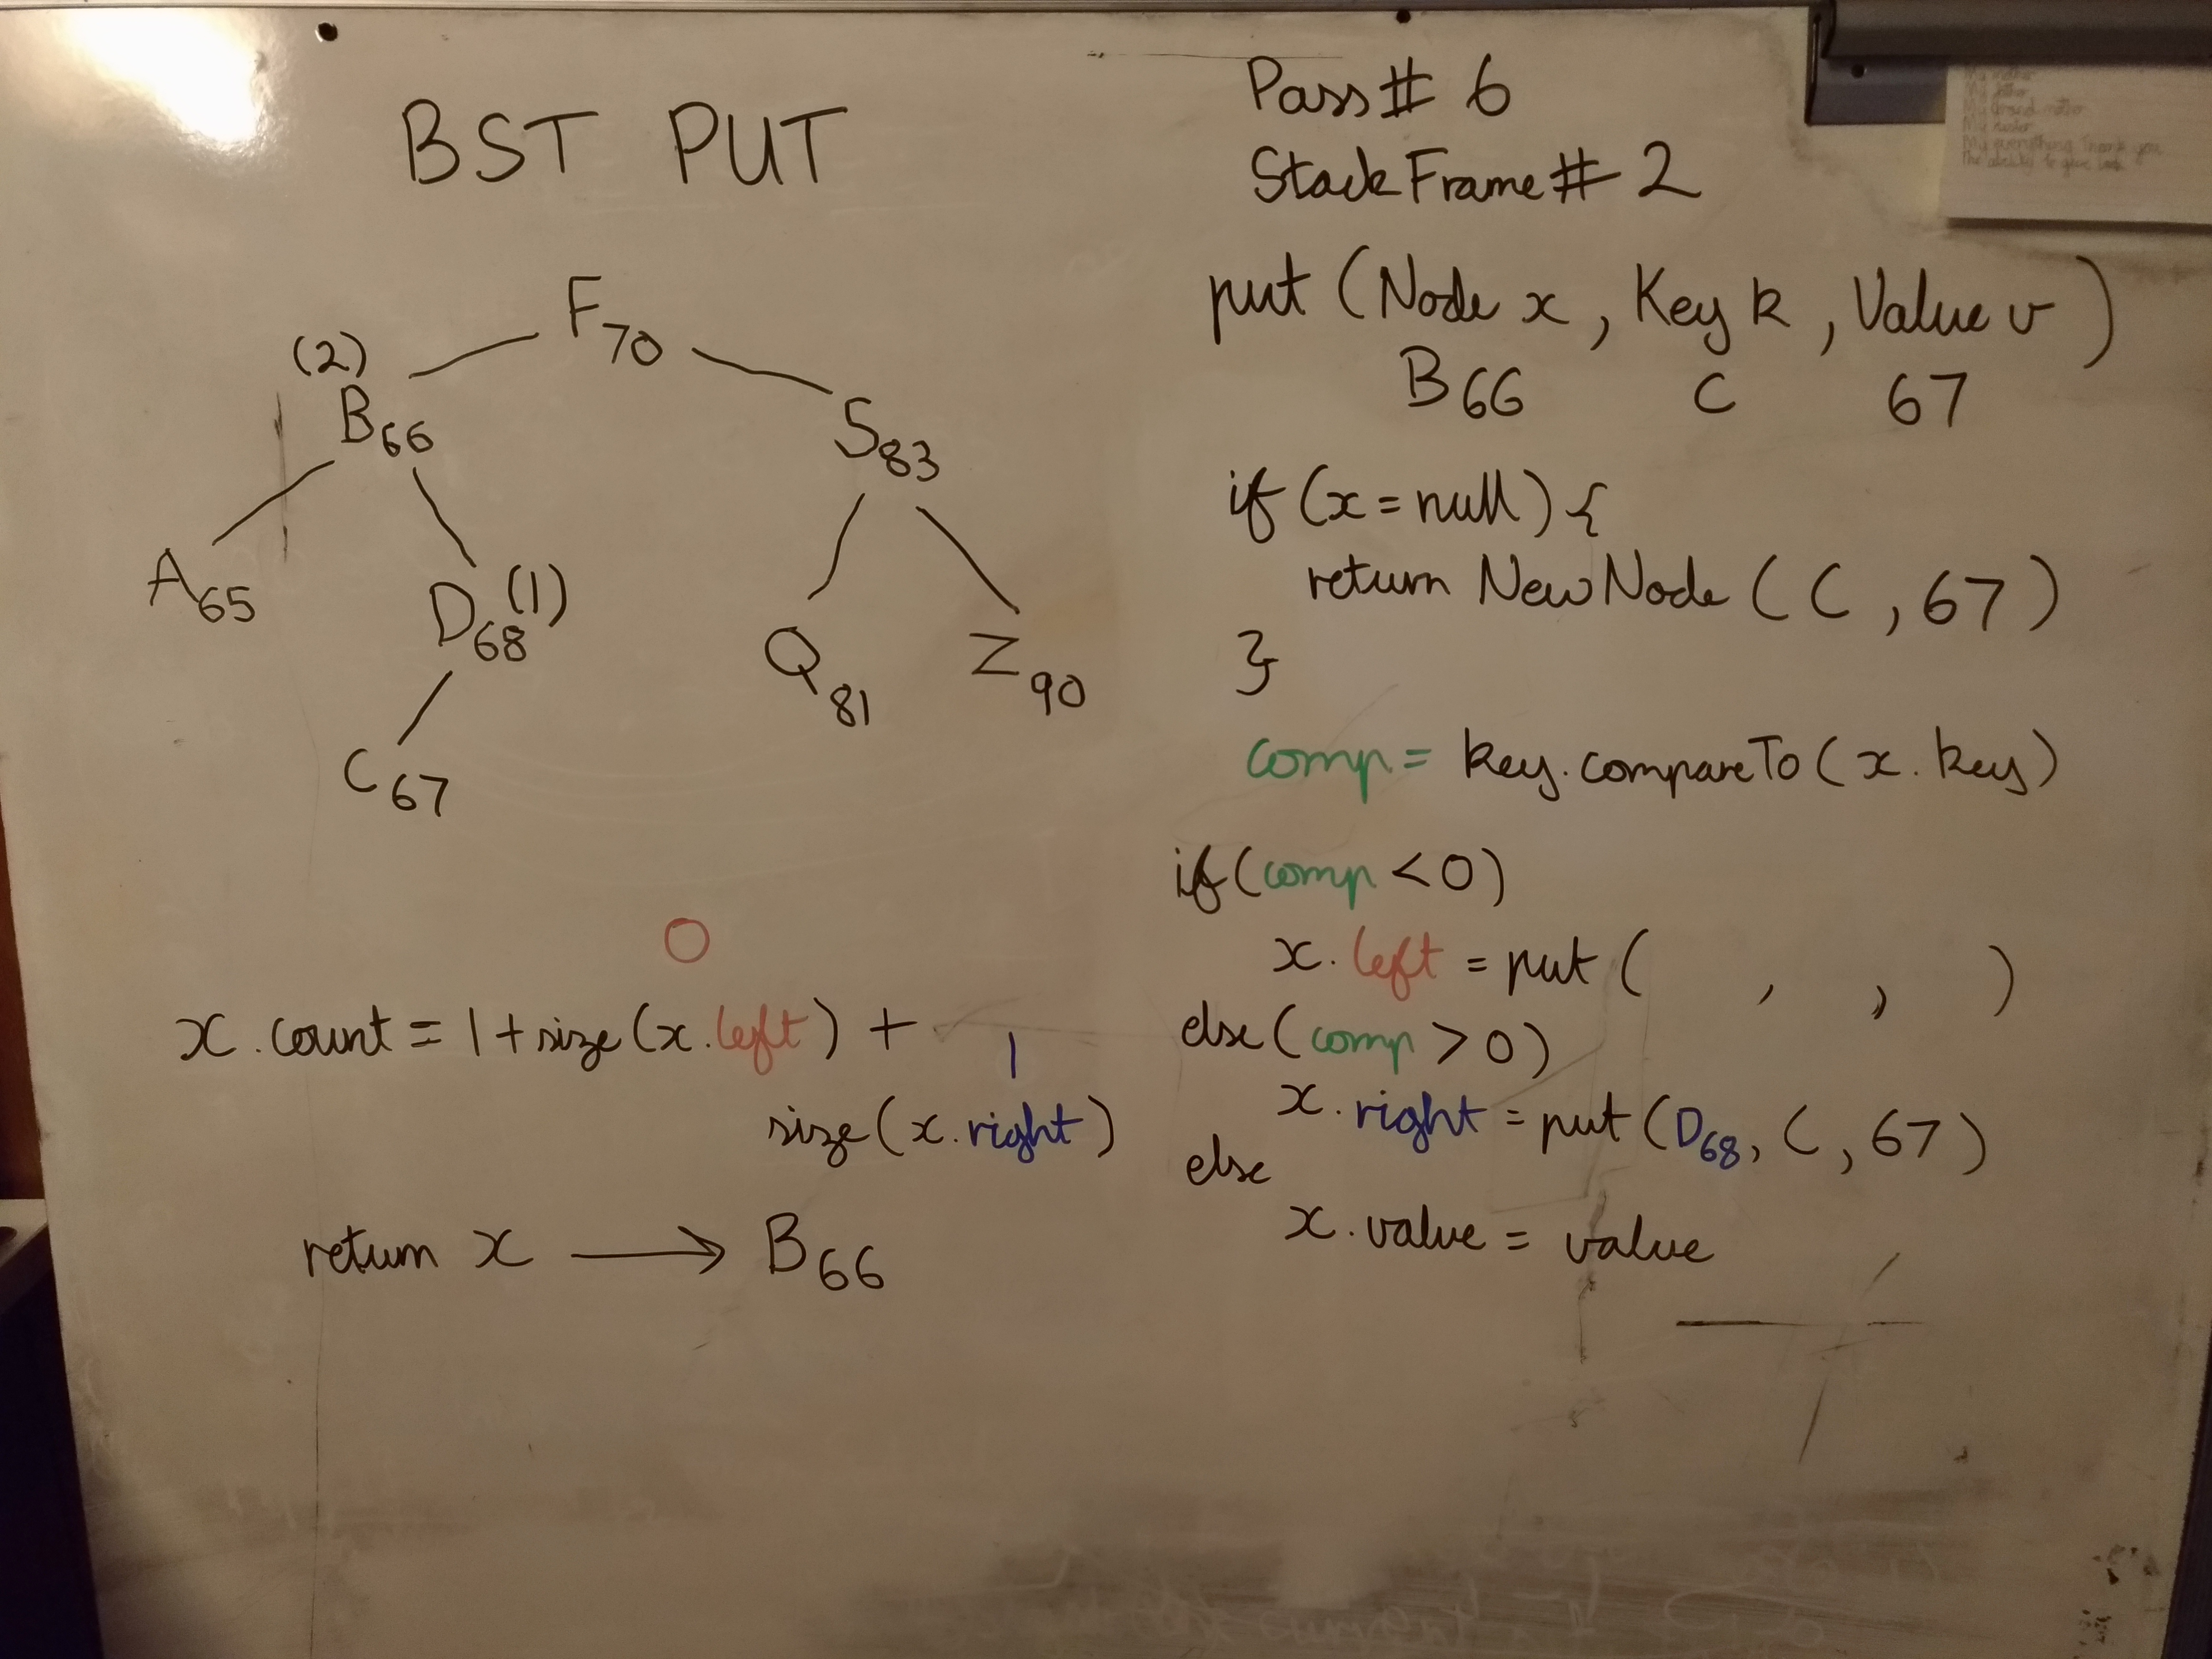 BST PUT
F70
(2)
B66
S83
A65
D68 (1)
Q81
Z90
C67
0
x.count = 1 + size(x.left) +
1
size(x.right)
return x → B66
Pass# 6
StackFrame# 2
put (Node x, Key k, Value v)
B66 C 67
if (x = null) {
return NewNode (C, 67)
}
comp = key.compareTo(x.key)
if (comp < 0)
x.left = put ( , , )
else (comp > 0)
x.right = put (D68, C, 67)
else
x.value = value
My everything Thank you